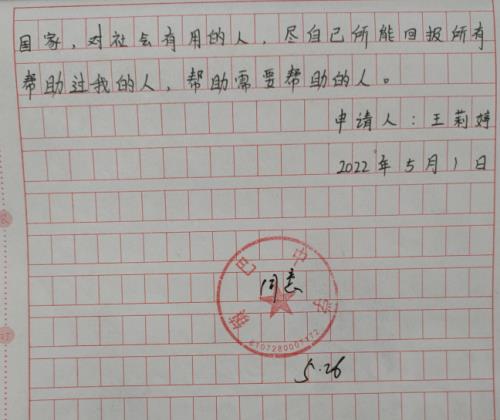 国家，对社会有用的人，尽自己所能回报所有
帮助过我的人，帮助需要帮助的人。
申请人：王莉婷
2022年5月1日
巴中学
同意
5.26